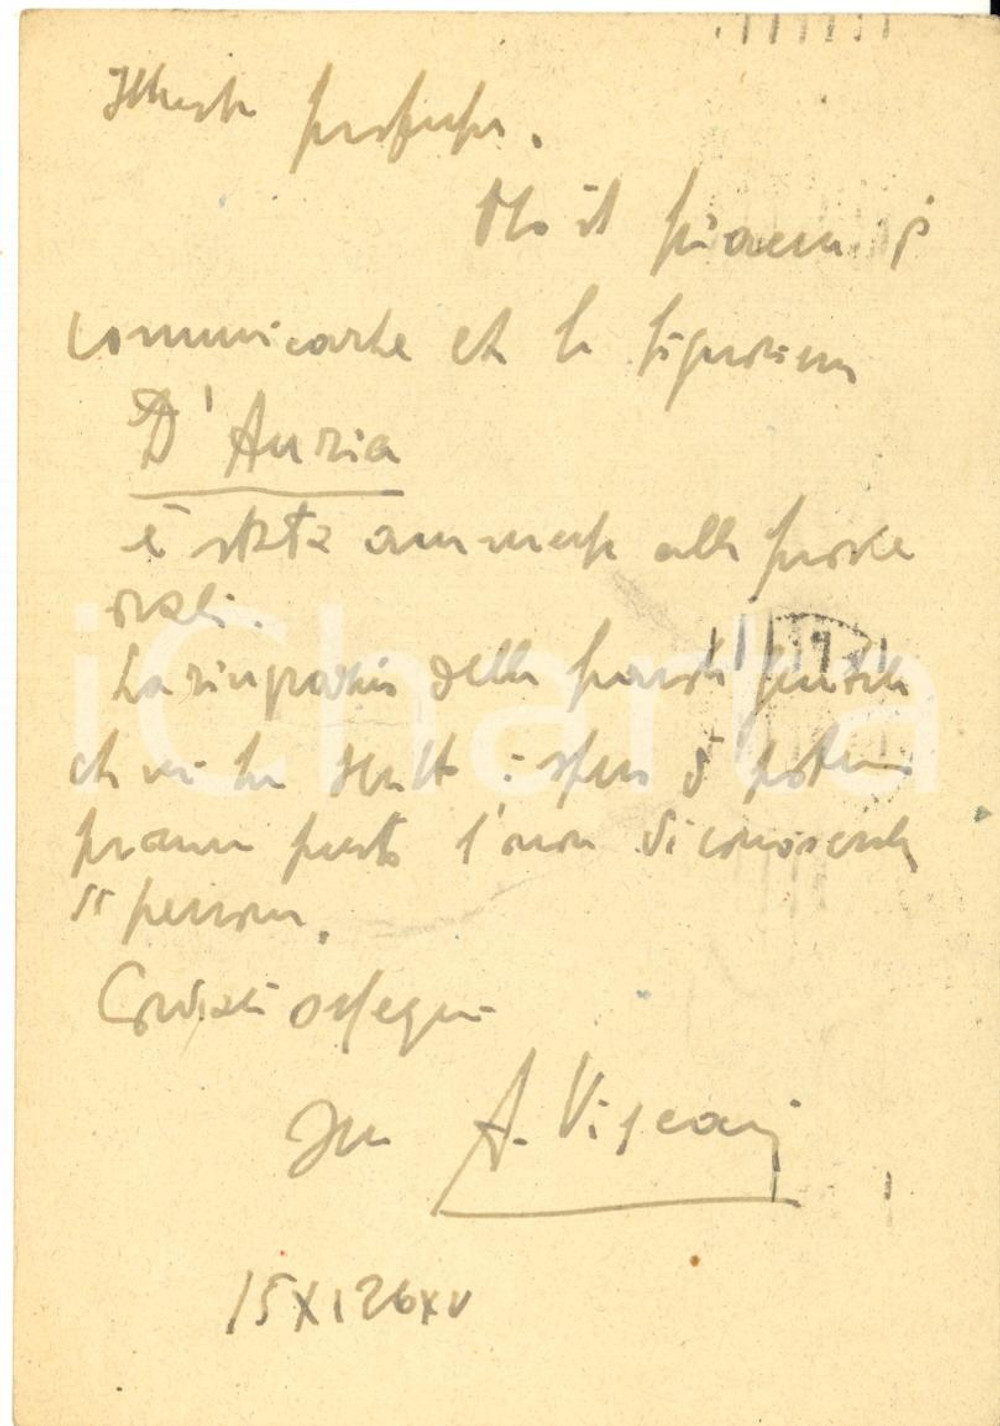 Illustre professore.
Ho il piacere di
comunicarle che la signorina
D'Auria
è stata ammessa alle prove
orali.
La ringrazio delle parole gentili
che mi ha scritto: spero di potere
piacere presto l'onore di conoscerla
di persona.
Cordiali ossequi
Suo A. Viscardi
15 XI 36 XV
iCharta